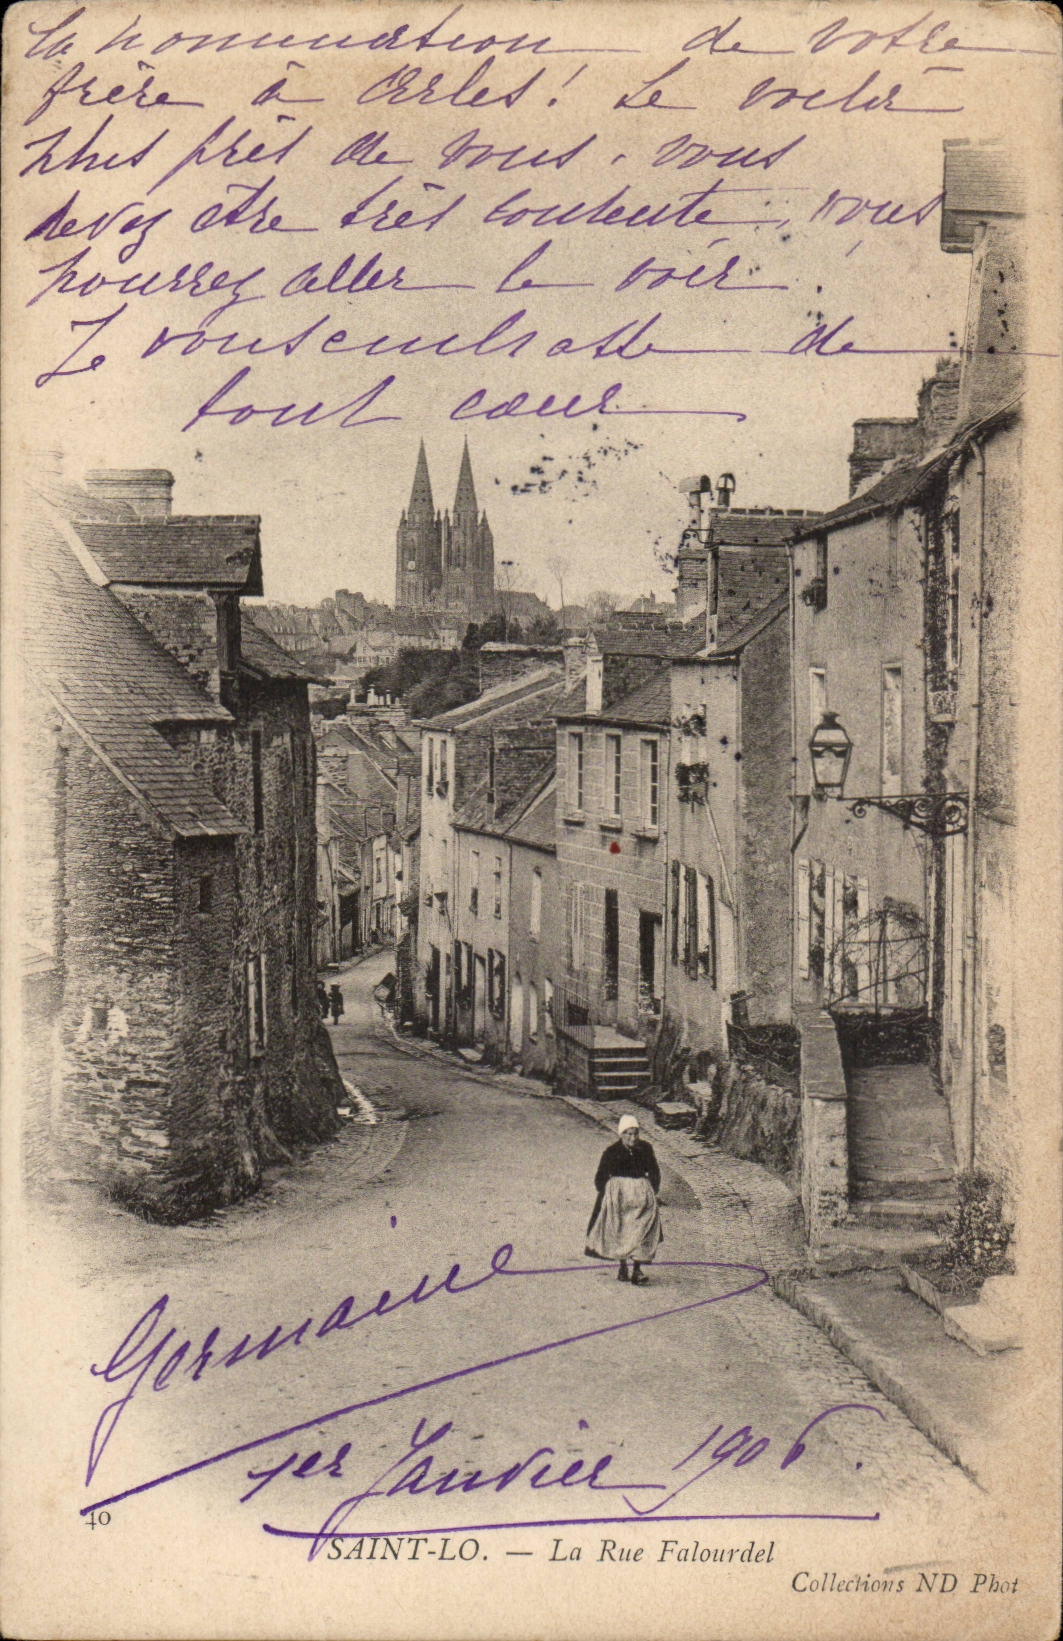 la nomination de votre
frère à Arles! Le voilà
plus près de vous. vous
devez être très contente, vous
pourrez aller le voir!
Je vous embrasse de
tout cœur
Germaine
1er Janvier 1906.
40
SAINT-LO. — La Rue Falourdel
Collections ND Phot